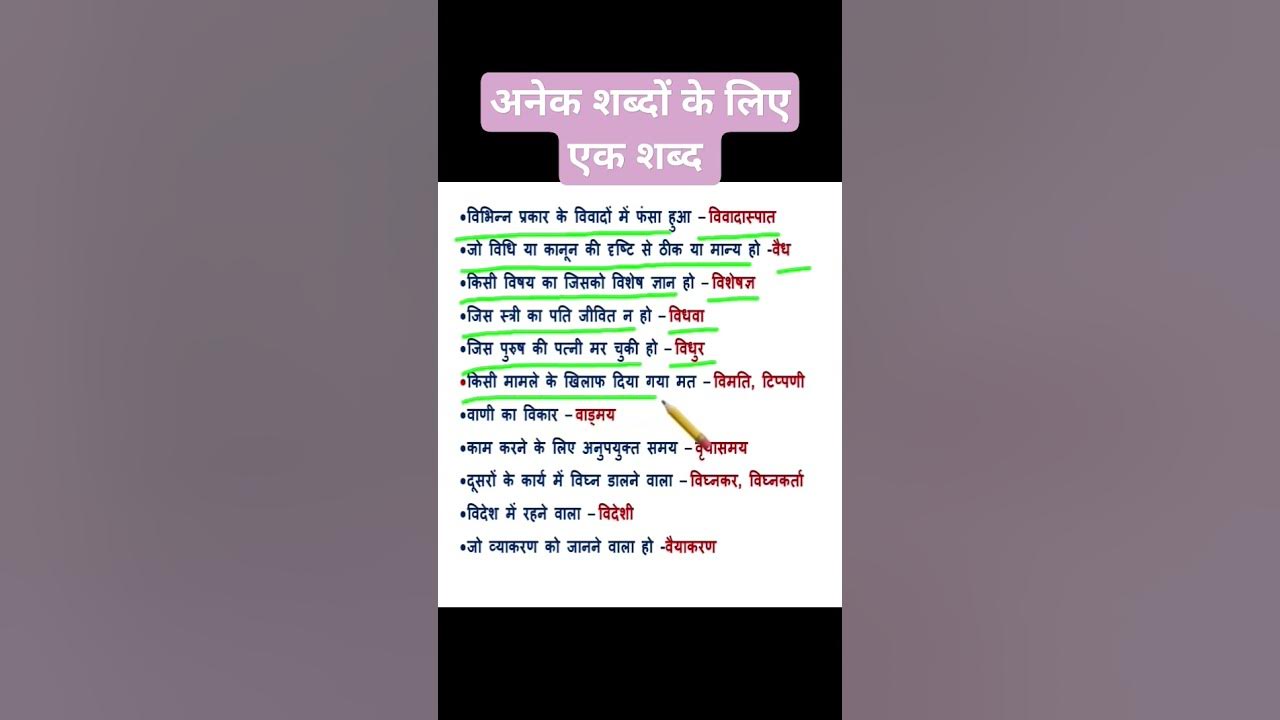 अनेक शब्दों के लिए
एक शब्द
•विभिन्न प्रकार के विवादों में फंसा हुआ – विवादास्पात
•जो विधि या कानून की दृष्टि से ठीक या मान्य हो -वैध
•किसी विषय का जिसको विशेष ज्ञान हो – विशेषज्ञ
•जिस स्त्री का पति जीवित न हो – विधवा
•जिस पुरुष की पत्नी मर चुकी हो – विधुर
•किसी मामले के खिलाफ दिया गया मत – विमति, टिप्पणी
•वाणी का विकार – वाड्मय
•काम करने के लिए अनुपयुक्त समय – वृथासमय
•दूसरों के कार्य में विघ्न डालने वाला – विघ्नकर, विघ्नकर्ता
•विदेश में रहने वाला – विदेशी
•जो व्याकरण को जानने वाला हो -वैयाकरण